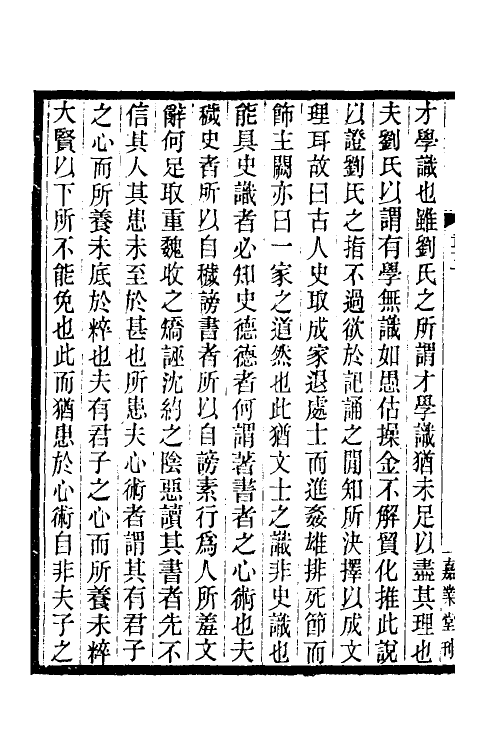 才學識也雖劉氏之所謂才學識猶未足以盡其理也
夫劉氏以謂有學無識如愚估操金不解貿化推此說
以證劉氏之指不過欲於記誦之閒知所決擇以成文
理耳故曰古人史取成家退處士而進姦雄排死節而
飾主闕亦曰一家之道然也此猶文士之識非史識也
能具史識者必知史德德者何謂著書者之心術也夫
穢史者所以自穢謗書者所以自謗素行爲人所羞文
辭何足取重魏收之矯誣沈約之陰惡讀其書者先不
信其人其患未至於甚也所患夫心術者謂其有君子
之心而所養未底於粹也夫有君子之心而所養未粹
大賢以下所不能免也此而猶患於心術自非夫子之
嘉業堂刊